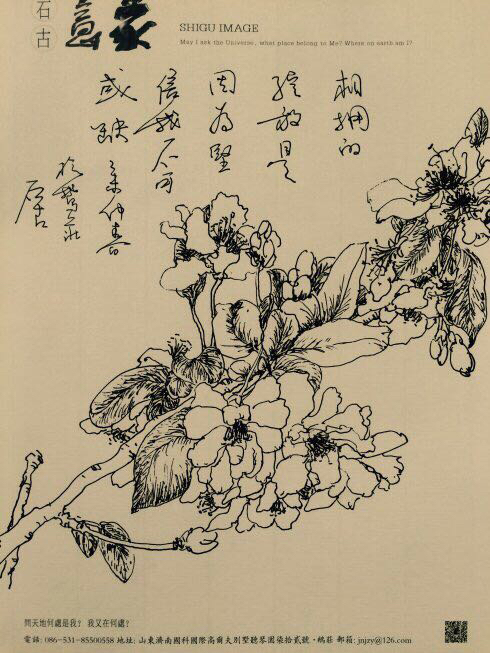 石古
意象
SHIGU IMAGE
May I ask the Universe, what place belong to Me? Where on earth am I?
相拥的
绽放是
因为坚
信我不可
或缺 仲春
石古
問天地何處是我？ 我又在何處？
電話: 086-531-85500558 地址: 山東濟南國科國際高爾夫別墅聽琴園柒拾貳號·鵲莊 郵箱: jnjzy@126.com